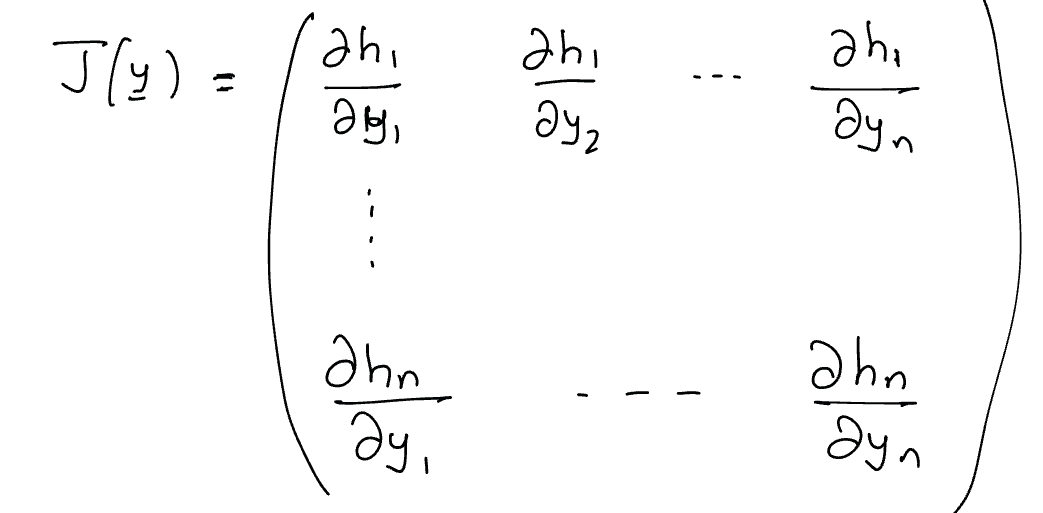 J(y) = ( ∂h₁/∂y₁ ∂h₁/∂y₂ --- ∂h₁/∂yₙ
⋮
∂hₙ/∂y₁ - - - ∂hₙ/∂yₙ )